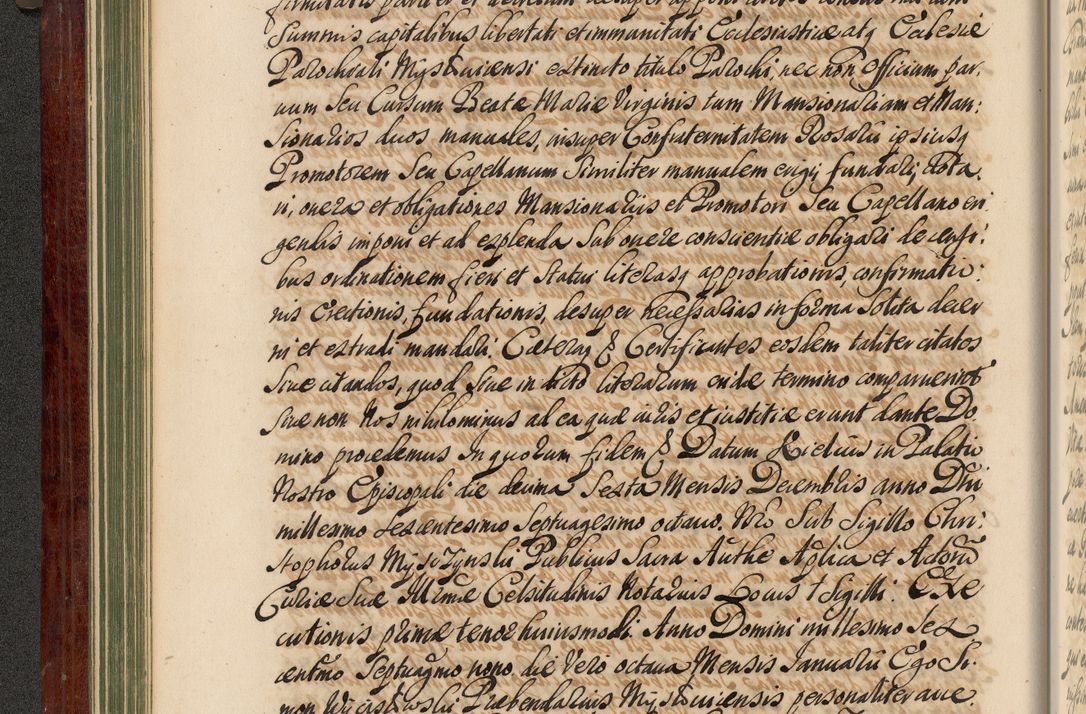 Summis capitalibus libertati et immunitati Ecclesiasticæ atq Ecclesiæ
Parochiali Mysłwicensi extincto titulo Parochi, nec non Officium par:
uum Seu Cursum Beatæ Mariæ Virginis tum Mansionariam et Man:
sionarios duos manuales, insuper Confraternitatem Rosarii ipsiusq
Promotorem Seu Capellanum Similiter manualem erigi, fundari, dota
ri, onera et obligationes Mansionariis et Promotori Seu Capellano eri
gendis imponi et ad explenda Sub onere conscientiæ obligari de censi:
bus ordinationem fieri et Statui literasq approbationis, confirmatio:
nis Erectionis, fundationis, desuper necessarias in forma Solita decer
ni et extradi mandari. Cæteraq & Certificantes eosdem taliter citatos
Siue citandos, quod Siue in dicto literarum cridæ termino comparuerint
siue non Nos nihilominus ad ea quæ iuris et iustitiæ erunt dante Do
mino procedemus In quorum fidem & Datum Kielciis in Palatio
Nostro Episcopali die decima Sexta Mensis Decembris anno Dni
millesimo sexcentesimo Septuagesimo octauo. Sub Sigillo Chri:
stophorus Myszynski Publicus Sacra Authe Aplica et Actorũ
Curiæ Suæ Celsitudinis Notarius Locus † Sigilli. EXe
cutionis primæ tenor huiusmodi. Anno Domini millesimo Sex
centmo Septuagmo nono die Vero octaua Mensis Januarii Ego Si:
mon Præbendarius Mysłwicensis personaliter